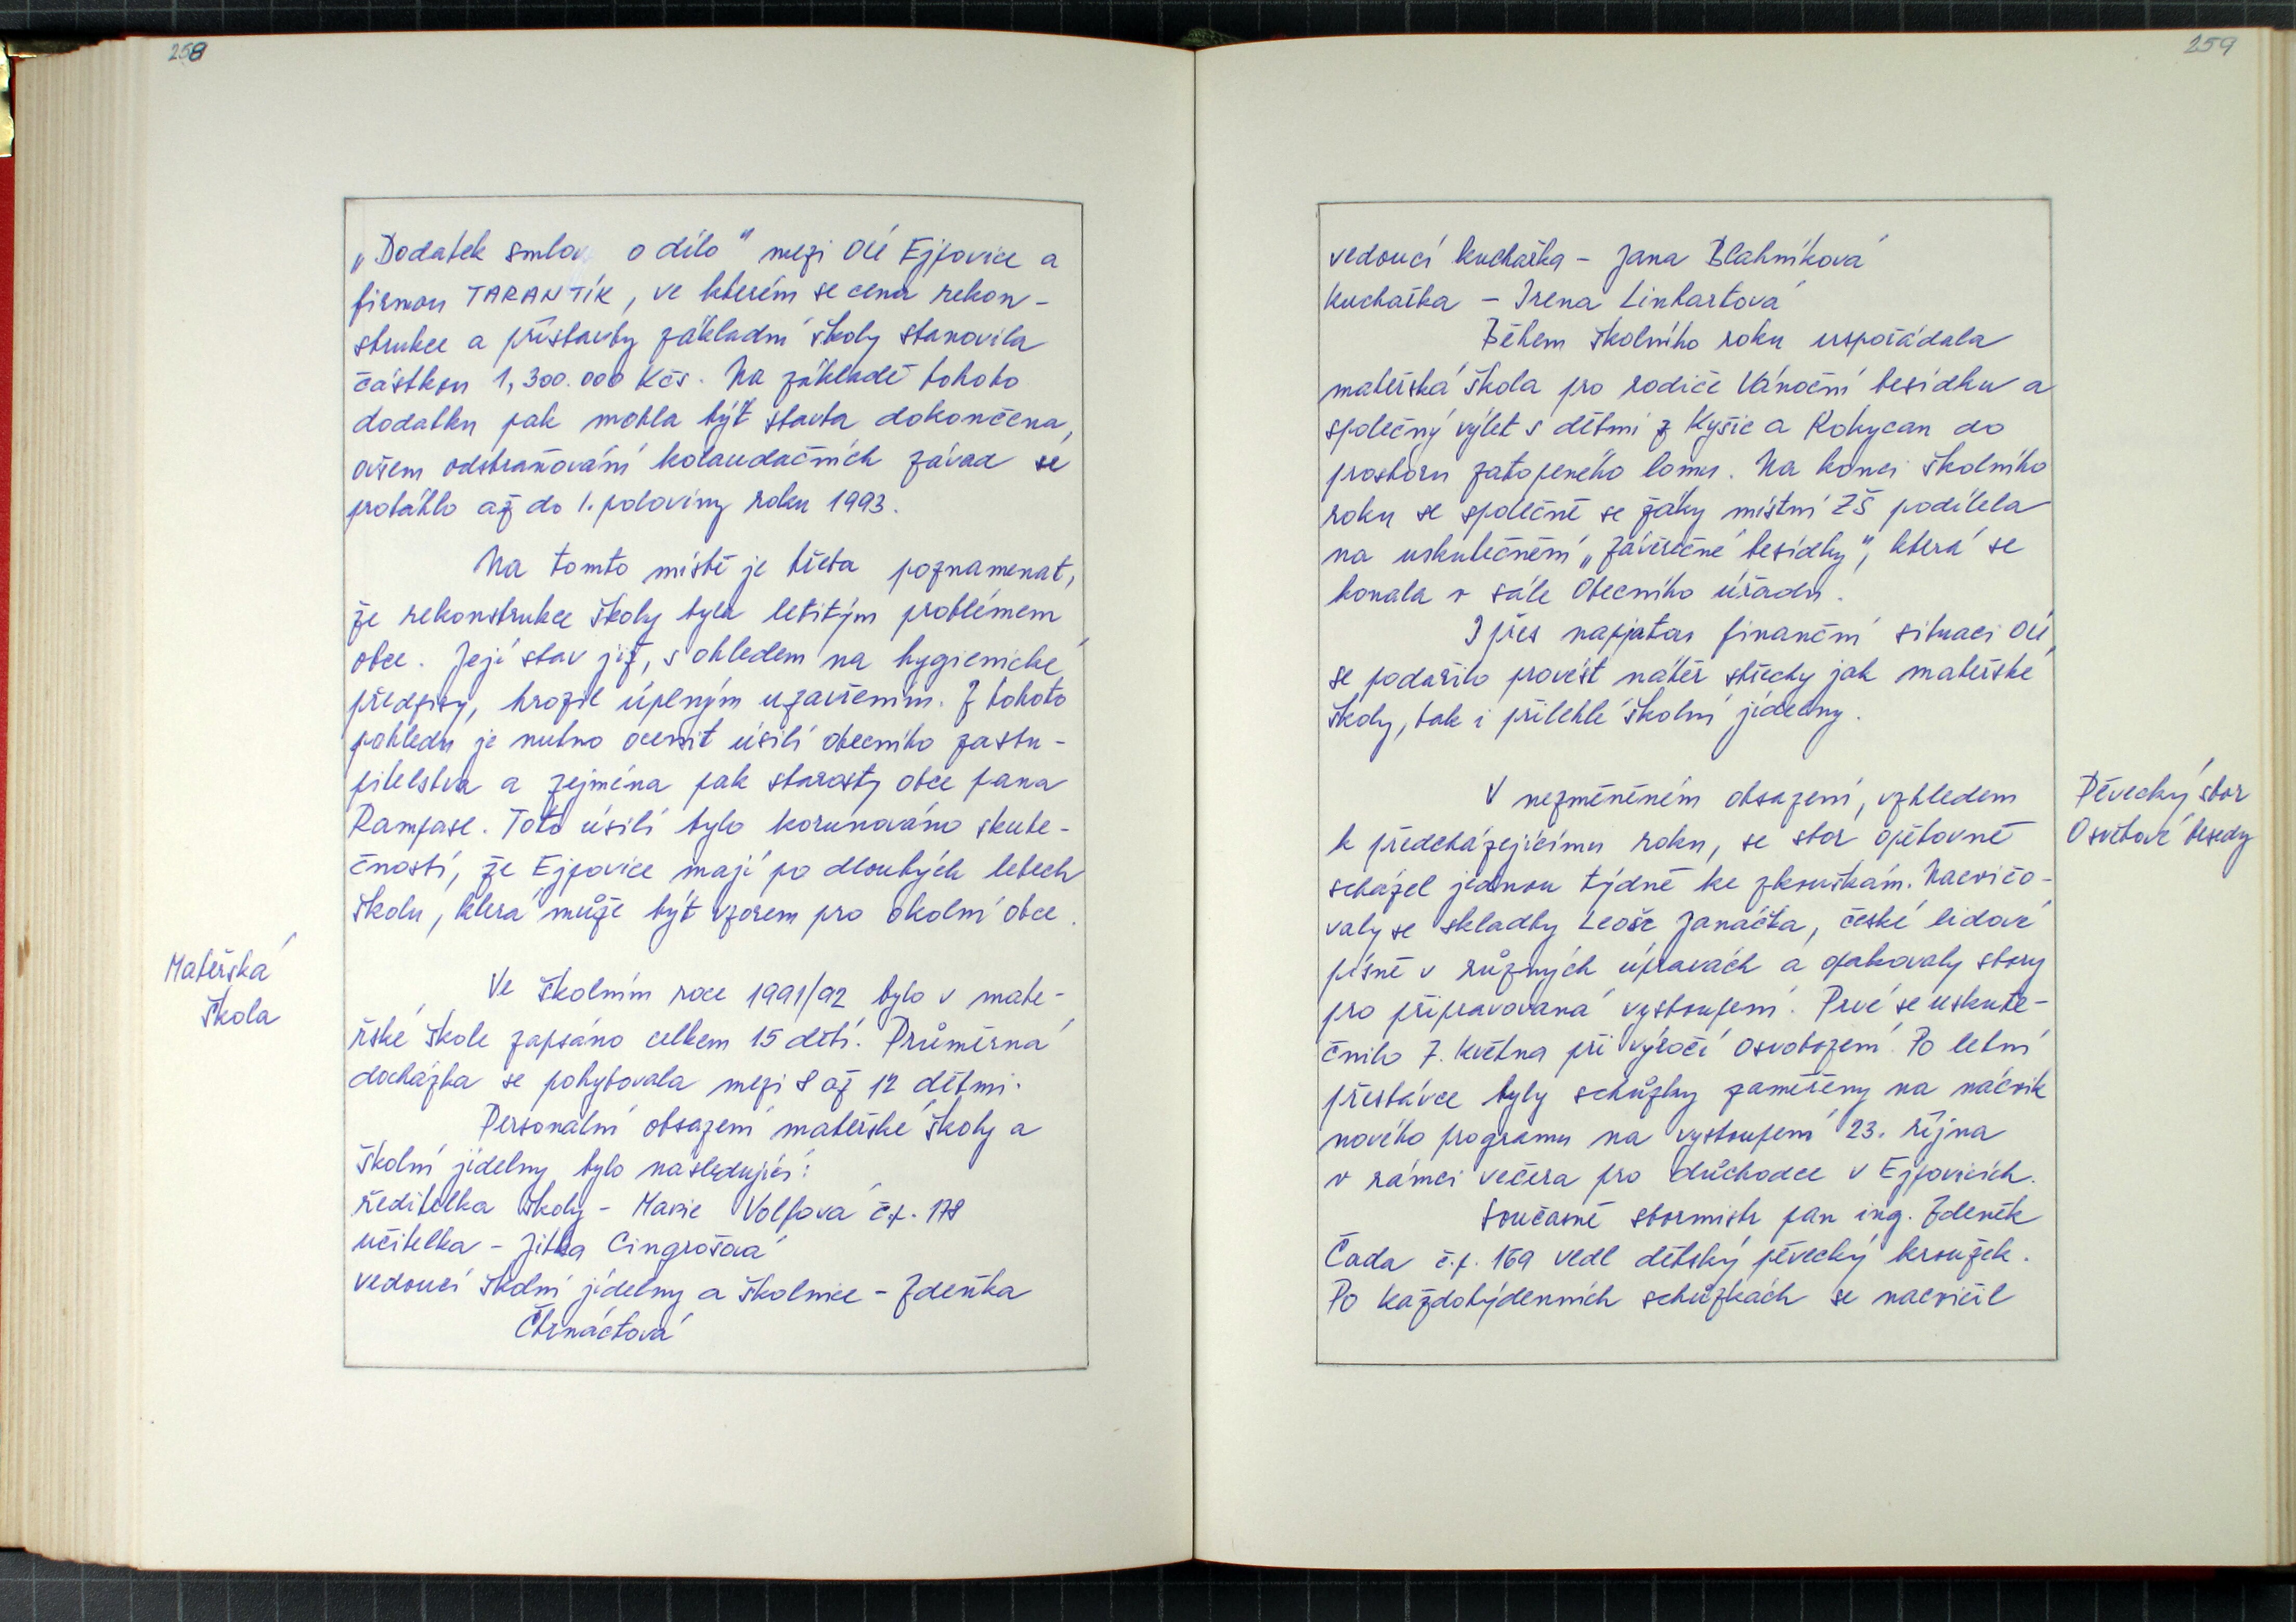 258
„Dodatek smlouvy o dílo" mezi OÚ Ejpovice a
firmou TARANTÍK, ve kterém se cena rekon-
strukce a přístavby základní školy stanovila
částkou 1,300.000 Kčs. Na základě tohoto
dodatku pak mohla být stavba dokončena,
ovšem odstraňování kolaudačních závad se
protáhlo až do 1. poloviny roku 1993.
Na tomto místě je třeba poznamenat,
že rekonstrukce školy byla letitým problémem
obce. Její stav již, s ohledem na hygienické
předpisy, hrozil úplným uzavřením. Z tohoto
pohledu je nutno ocenit úsilí obecního zastu-
pitelstva a zejména pak starosty obce pana
Rampase. Toto úsilí bylo korunováno skute-
čností, že Ejpovice mají po dlouhých letech
školu, která může být vzorem pro okolní obce.
Mateřská
škola
Ve školním roce 1991/92 bylo v mate-
řské škole zapsáno celkem 15 dětí. Průměrná
docházka se pohybovala mezi 8 až 12 dětmi.
Personální obsazení mateřské školy a
školní jídelny bylo následující:
ředitelka školy - Marie Volfová č.p. 178
učitelka - Jitka Cingrošová
vedoucí školní jídelny a školnice - Zdeňka
Čtrnáctová
259
vedoucí kuchařka - Jana Blahníková
kuchařka - Irena Linhartová
Během školního roku uspořádala
mateřská škola pro rodiče Vánoční besídku a
společný výlet s dětmi z Kyšic a Rokycan do
prostoru zatopeného lomu. Na konci školního
roku se společně se žáky místní ZŠ podílela
na uskutečnění „Závěrečné besídky", která se
konala v sále Obecního úřadu.
I přes napjatou finanční situaci OÚ,
se podařilo provést nátěr střechy jak mateřské
školy, tak i přilehlé školní jídelny.
Pěvecký sbor
Osvětové besedy
V nezměněném obsazení, vzhledem
k předcházejícímu roku, se sbor opětovně
scházel jednou týdně ke zkouškám. Nacvičo-
valy se skladby Leoše Janáčka, české lidové
písně v různých úpravách a opakovaly sbory
pro připravovaná vystoupení. Prvé se uskute-
čnilo 7. května při výročí osvobození. Po letní
přestávce byly schůzky zaměřeny na nácvik
nového programu na vystoupení 23. října
v rámci večera pro důchodce v Ejpovicích.
Současně sbormistr pan ing. Zdeněk
Čada č.p. 169 vedl dětský pěvecký kroužek.
Po každotýdenních schůzkách se nacvičil